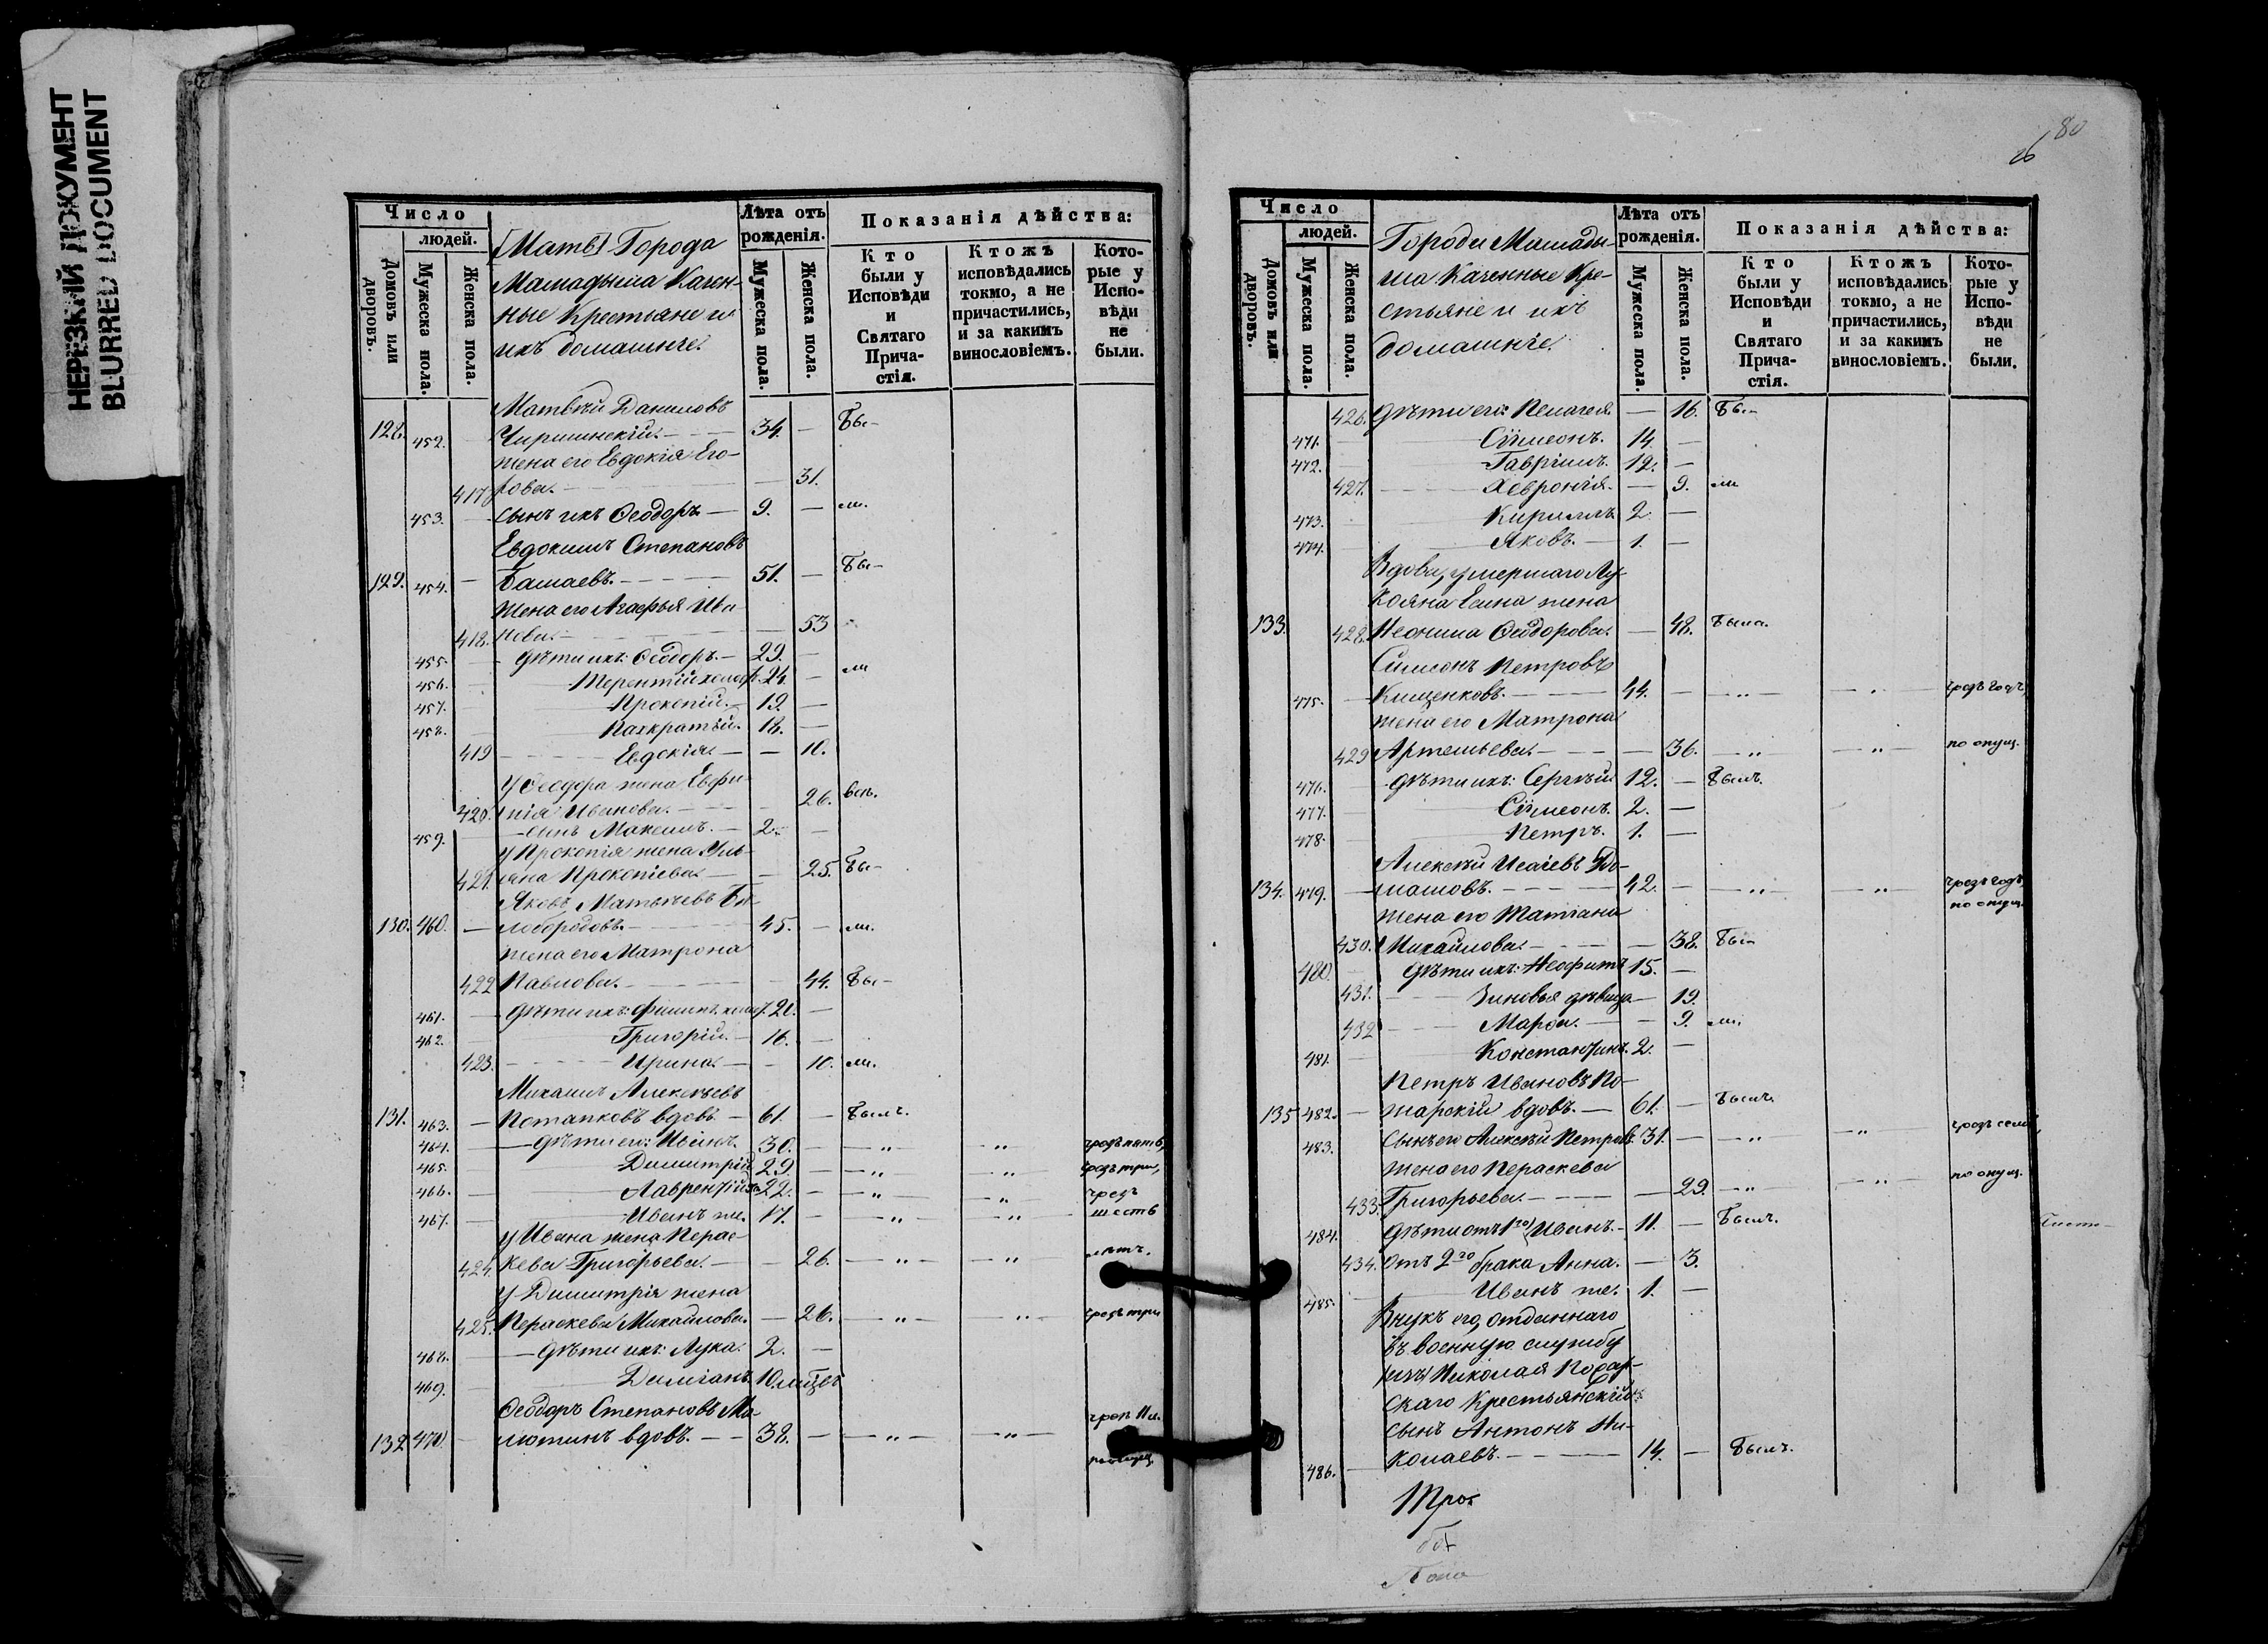 НЕРЕЗКИЙ ДОКУМЕНТ
BLURRED DOCUMENT
Число
людей.
Домовъ или дворовъ.
Мужеска пола.
Женска пола.
Города
Мамадыша Казен-
ные Крестьяне и
ихъ домашніе.
Лѣта отъ рожденія.
Мужеска пола.
Женска пола.
Показанія дѣйства:
Кто были у Исповѣди и Святаго Прича-стія.
Ктожъ исповѣдались токмо, а не причастились, и за какимъ винословіемъ.
Кото-рые у Испо-вѣди не были.
Матвѣй Даниловъ
128. 452. — 34. — Бы-
жена его Евдокія Его-
417 рова. — 31.
453. — сынъ ихъ Ѳеодоръ — 9. — м.
Евдокимъ Степановъ
129. 454. — 51. — Бы-
жена его Агафья Ива-
418. нова. — 53
455. — дѣти ихъ: Ѳеодоръ. — 29. —
456. — Терентій холос. 24. — м
457. — Прокопій. — 19. —
458. — Панкратій. 18. —
419 — Евдокія. — 10.
у Ѳеодора жена Евфи-
420. мія Иванова. — 26.
459. — сынъ Максимъ. — 2. —
у Прокопія жена Улья-
421. на Прокопіева. — 25. Бы-
Яковъ Матвѣевъ Бѣ-
130. 460. — лобородовъ. — 45. — м.
жена его Матрона
422 Павлова. — 44. Бы-
461. — дѣти ихъ: Филипъ холос. 20. —
462. — Григорій. — 16. —
423. — Ирина. — 10. м.
Михаилъ Алексѣевъ
131. 463. — Потапковъ вдовъ. — 61. — Былъ.
464. — дѣти его: Иванъ. 30. — „ „ чрезъ пять,
465. — Димитрій 29. — „ „ чрезъ три,
466. — Лаврентій 22. — „ „ чрезъ
467. — Иванъ же. 17. — „ „ шесть
у Ивана жена Парас-
424. кева Григорьева. — 26. — „ „ лѣтъ.
у Димитрія жена
425. Параскева Михайлова. — 26. — „ „ чрезъ три
468. — дѣти ихъ: Лука. 2. —
469. — Даміанъ. 10. мѣсцъ
Ѳеодоръ Степановъ Ма-
132 470. — лютинъ вдовъ. — 38. — „ „ чрезъ 11 л.
по опущ.
80
Число
людей.
Домовъ или дворовъ.
Мужеска пола.
Женска пола.
Города Мамады-
ша Казенные Кре-
стьяне и ихъ
домашніе.
Лѣта отъ рожденія.
Мужеска пола.
Женска пола.
Показанія дѣйства:
Кто были у Исповѣди и Святаго Прича-стія.
Ктожъ исповѣдались токмо, а не причастились, и за какимъ винословіемъ.
Кото-рые у Испо-вѣди не были.
426. дѣти его: Пелагея — 16. Бы-
471. — Сѵмеонъ. 14. —
472. — Гавріилъ. 12. —
427. — Хевронія. — 9. м
473. — Кириллъ 2. —
474. — Яковъ. — 1. —
Вдова, умершаго Лу-
кояна жена
133. 428. Неонила Ѳеодорова. — 48. Была.
Сѵмеонъ Петровъ
475. — Кищенковъ. — 44. — „ „ чрезъ годъ,
жена его Матрона
429 Артемьева. — 36. — „ „ по опущ.
476. — дѣти ихъ: Сергѣй 12. — Былъ.
477. — Сѵмеонъ. 2. —
478. — Петръ. 1. —
Алексѣй Исаіевъ
134. 479. — 42. — „ „ чрезъ годъ,
по опущ.
жена его Татіана
430. Михайлова. — 38. Бы-
480. дѣти ихъ: Неофитъ 15. —
431. — Зиновья дѣвица — 19.
432 — Марѳа. — 9. м.
481. — Константинъ. 2. —
Петръ Ивановъ По-
135 482. — жарскій вдовъ. — 61. — Былъ.
483. сынъ его Алексѣй Петровъ. 31. — „ „ чрезъ семь,
жена его Параскева
433. Григорьева. — 29. — „ „ по опущ.
484. дѣти отъ 1го) Иванъ. — 11. — Былъ.
434. отъ 2го брака Анна. — 3.
485. Иванъ же. 1. —
Внукъ его, отданнаго
въ военную службу
Николая Пожар-
скаго Крестьянскій
сынъ Антонъ Ни-
486. — колаевъ. — 14. — Былъ.